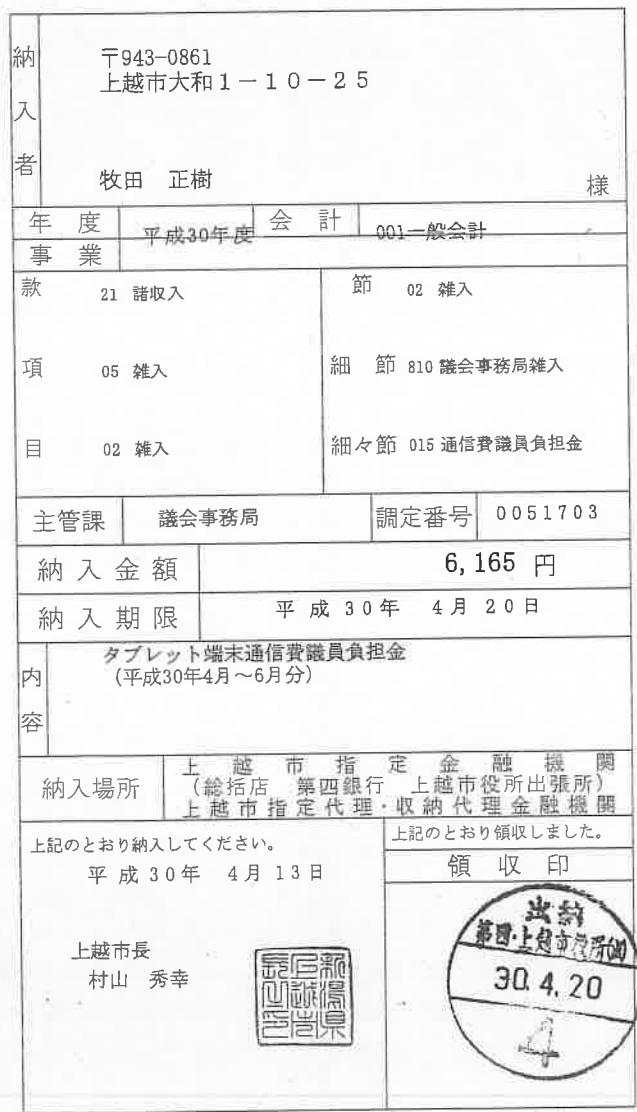 納入者
〒943-0861
上越市大和1-10-25
牧田 正樹 様
年度 平成30年度 会計 001一般会計
事業
款 21 諸収入 節 02 雑入
項 05 雑入 細節 810 議会事務局雑入
目 02 雑入 細々節 015 通信費議員負担金
主管課 議会事務局 調定番号 0051703
納入金額 6,165 円
納入期限 平成30年 4月20日
内容
タブレット端末通信費議員負担金
(平成30年4月~6月分)
納入場所
上越市指定金融機関
(総括店 第四銀行 上越市役所出張所)
上越市指定代理・収納代理金融機関
上記のとおり納入してください。
平成30年 4月13日
上越市長
村山 秀幸
新潟県
上越市
長之印
上記のとおり領収しました。
領収印
出納
第四・上越市役所(出)
30.4.20
4